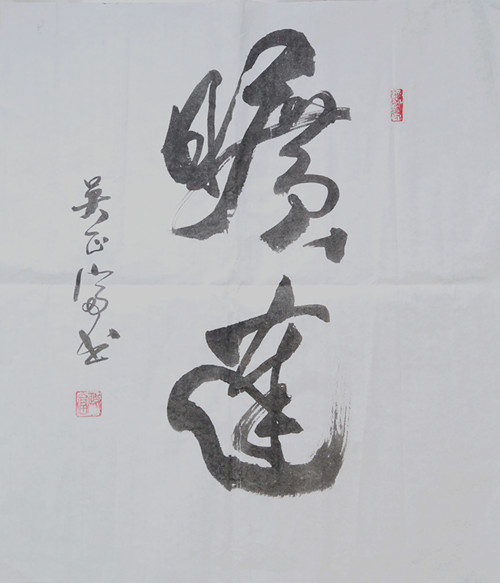 曠達
吴正濤书